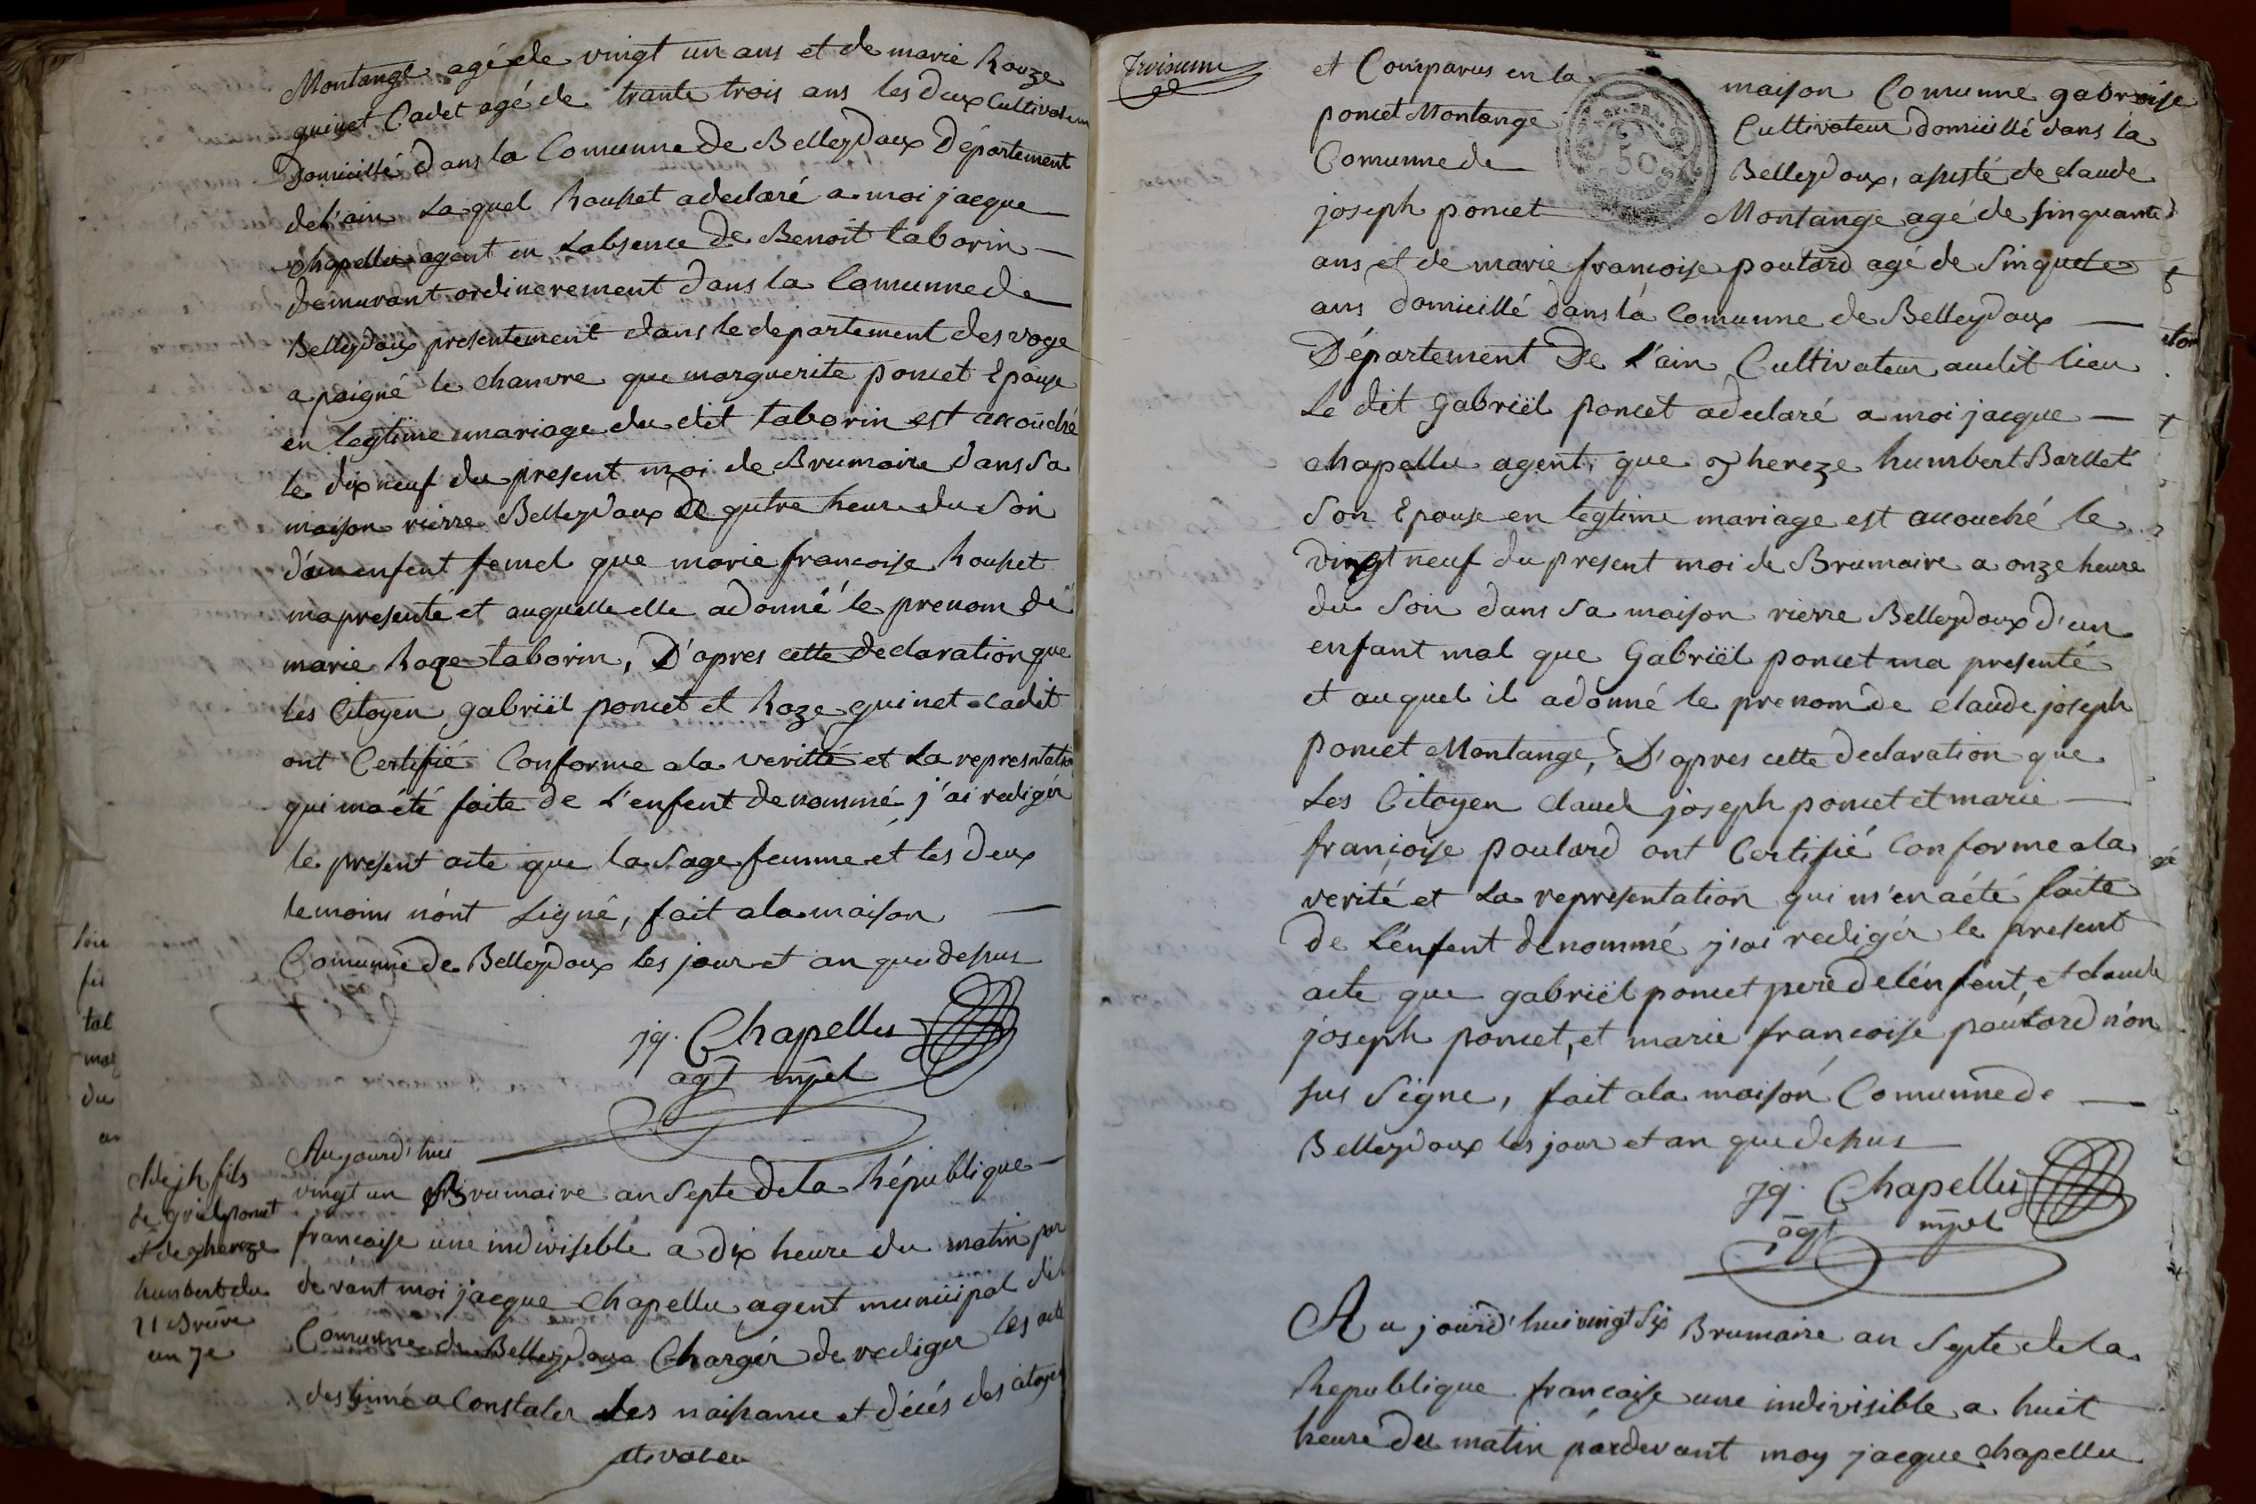 Montange agé de vingt un ans et de marie Roze
guinet Cadet agé de trante trois ans les deux Cultivateur
Domicillé dans la Comunne de Belleydoux Département
de l'ain Laquel Rouset adeclaré a moi jacque
chapellu agent en Labsence de Benoit taborin
demurant ordinerement dans la Comunne de
Belleydoux presentement dans le departement des voge
a paigné le chanvre que marguerite poncet Epouse
en legtime mariage du dit taborin est accouché
le dix neuf du present moi de Brumaire dans sa
maison rierre Belleydoux a qutre heure du Soir
d'un enfent femel que marie francoise Rouset
ma presenté et auquelle elle adonné le prenom de
marie Roze taborin, D'apres cette declaration que
les Citoyen gabriël poncet et Roze guinet cadet
ont Certifié Conforme ala veritté et La represntation
qui ma été faite de L'enfent denommé j'ai redigér
le present acte que la sage femme et les deux
temoins n'ont Signé, fait ala maison
Comunne de Belleydoux les jour et an que desus
jq. Chapellu
agt mpel
Clde jh fils
de griel poncet
et de thereze
humbert du
21 Brure
an 7e
Aujourd'hui
vingt un Brumaire an Septe de la République
francaise une indivisible a dix heure du matin par
devant moi jacque Chapellu agent municipal de
Comunne de Belleydoux Chargér de rediger les acte
destinné a Constater les naissance et décés des citoyen
Troisieme
et Comparus en la maison Comunne gabroise
poncet Montange Cultivateur domicillé dans la
Comunne de Belleydoux, assisté de claude
joseph poncet Montange agé de sinquante
50
ans et de marie francoise poutard agé de Sinquete
ans domicillé dans la Comunne de Belleydoux
Département De L'ain Cultivateur audit lieu
Le dit gabriël poncet adeclaré a moi jacque
chapellu agent, que thereze humbert Barllet
Son Epouse en legtime mariage est accouché le
vingt neuf du present moi de Brumaire a onze heure
du Soir dans sa maison rierre Belleydoux d'un
enfant mal que Gabriël poncet ma presenté
et auquel il adonné le prenom de claude joseph
poncet Montange, D'apres cette declaration que
Les Citoyen claud joseph poncet et marie
françoise poulard ont Certifié Conforme ala
verité et La representation qui m'en aété faite
de L'enfent denommé j'ai redigér le present
acte que gabriël poncet pere de lénfent, et claude
joseph poncet, et marie francoise poutard n'on
sus Signe, fait ala maison Comunne de
Belleydoux les jour et an que desus
jq. Chapellu
agt mpel
Au jourd'hui vingt Six Brumaire an Septe de la
Republique francaise une indivisible a huit
heure du matin pardevant moy jacque chapellu